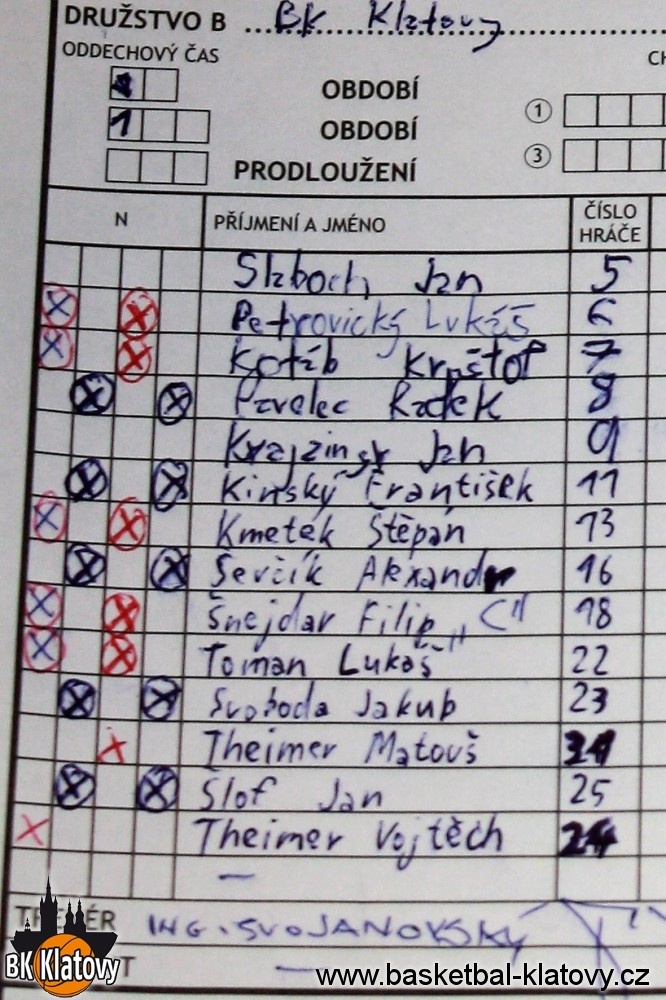 DRUŽSTVO B BK Klatovy
ODDECHOVÝ ČAS
OBDOBÍ
1 OBDOBÍ 1
PRODLOUŽENÍ 3
N PŘÍJMENÍ A JMÉNO ČÍSLO HRÁČE
Slaboch Jan 5
Petrovický Lukáš 6
Kotáb Kryštof 7
Pavelec Radek 8
Jan 9
Kinský František 11
Kmeťek Štěpán 13
Ševčík Alexandr 16
Šnejdar Filip „C" 18
Toman Lukáš 22
Svoboda Jakub 23
Theimer Matouš
Šlof Jan 25
Theimer Vojtěch 24
ING. SVOJANOVSKÝ
BK Klatovy
www.basketbal-klatovy.cz